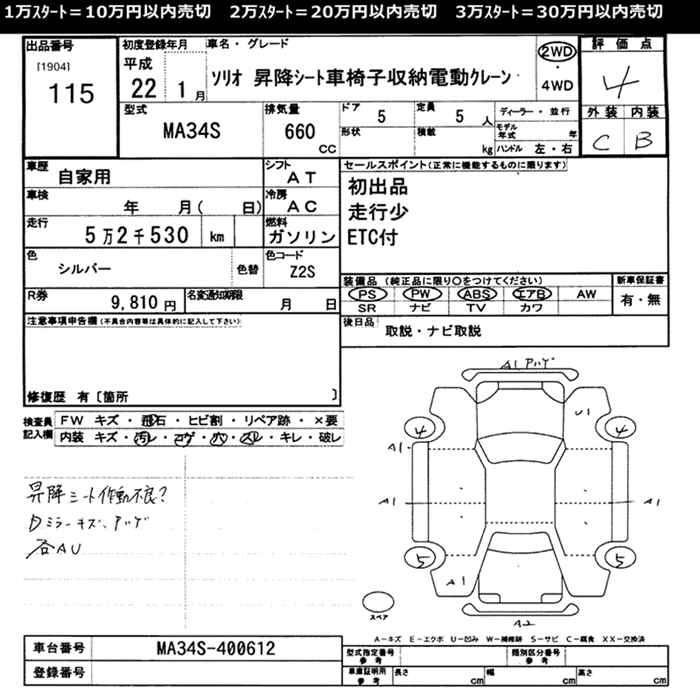 1万スタート=10万円以内売切 2万スタート=20万円以内売切 3万スタート=30万円以内売切
出品番号
[1904]
115
初度登録年月
平成
22 1月
車名・グレード
ソリオ 昇降シート車椅子収納電動クレーン
2WD
・
4WD
評価点
4
外装 内装
C B
型式
MA34S
排気量
660 cc
ドア
5
形状
定員
5 人
積載
kg
ディーラー・並行
モデル年式 年
ハンドル 左・右
車歴
自家用
シフト
AT
車検
年 月( 日)
冷房
AC
走行
5万2千530 km
燃料
ガソリン
色
シルバー
色替
色コード
Z2S
R券
9,810円
名変通知期限
月 日
セールスポイント(正常に機能するものに限ります)
初出品
走行少
ETC付
装備品(純正品に限り○をつけてください)
PS PW ABS エアB AW
SR ナビ TV カワ
新車保証書
有・無
後日品
取説・ナビ取説
注意事項申告欄(不具合内容等は具体的に記入して下さい)
修復歴 有[箇所 ]
検査員記入欄
FW キズ・飛石・ヒビ割・リペア跡・×要
内装 キズ・汚レ・コゲ・穴・スレ・キレ・破レ
昇降シート作動不良?
日ミラーキズ、ハゲ
各AU
A1 ハゲ
U1
4 4
A1
A1 A1
5 5
A1
A2
スペア
A-キズ E-エクボ U-凹み W-補修跡 S-サビ C-腐食 XX-交換済
車台番号
MA34S-400612
登録番号
型式指定番号
参考
類別区分番号
参考
車庫証明用
参考
長さ cm
幅 cm
高さ cm